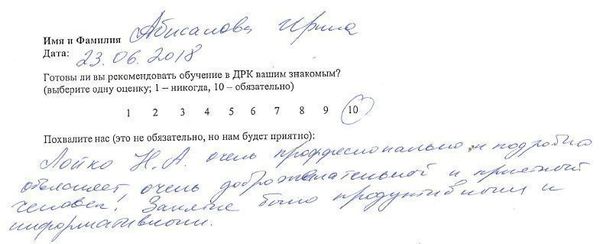 Имя и Фамилия Абисалова Ирина
Дата: 23.06.2018
Готовы ли вы рекомендовать обучение в ДРК вашим знакомым?
(выберите одну оценку; 1 – никогда, 10 – обязательно)
1 2 3 4 5 6 7 8 9 10
Похвалите нас (это не обязательно, но нам будет приятно):
Лойко Н.А. очень профессионально и подробно
объясняет, очень доброжелательной и приятный
человек! Занятие было продуктивным и
информативным.